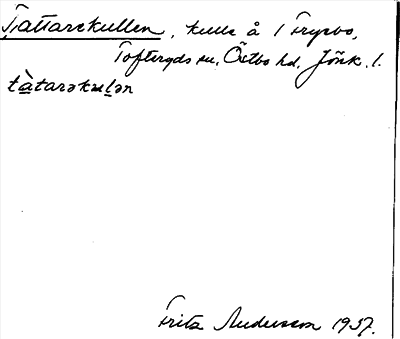 Tattarekullen, kulle å 1 Fryebo,
Tofteryds sn, Östbo hd, Jönk. l.
tàtarəkuḷən
Frita Andersson 1937.